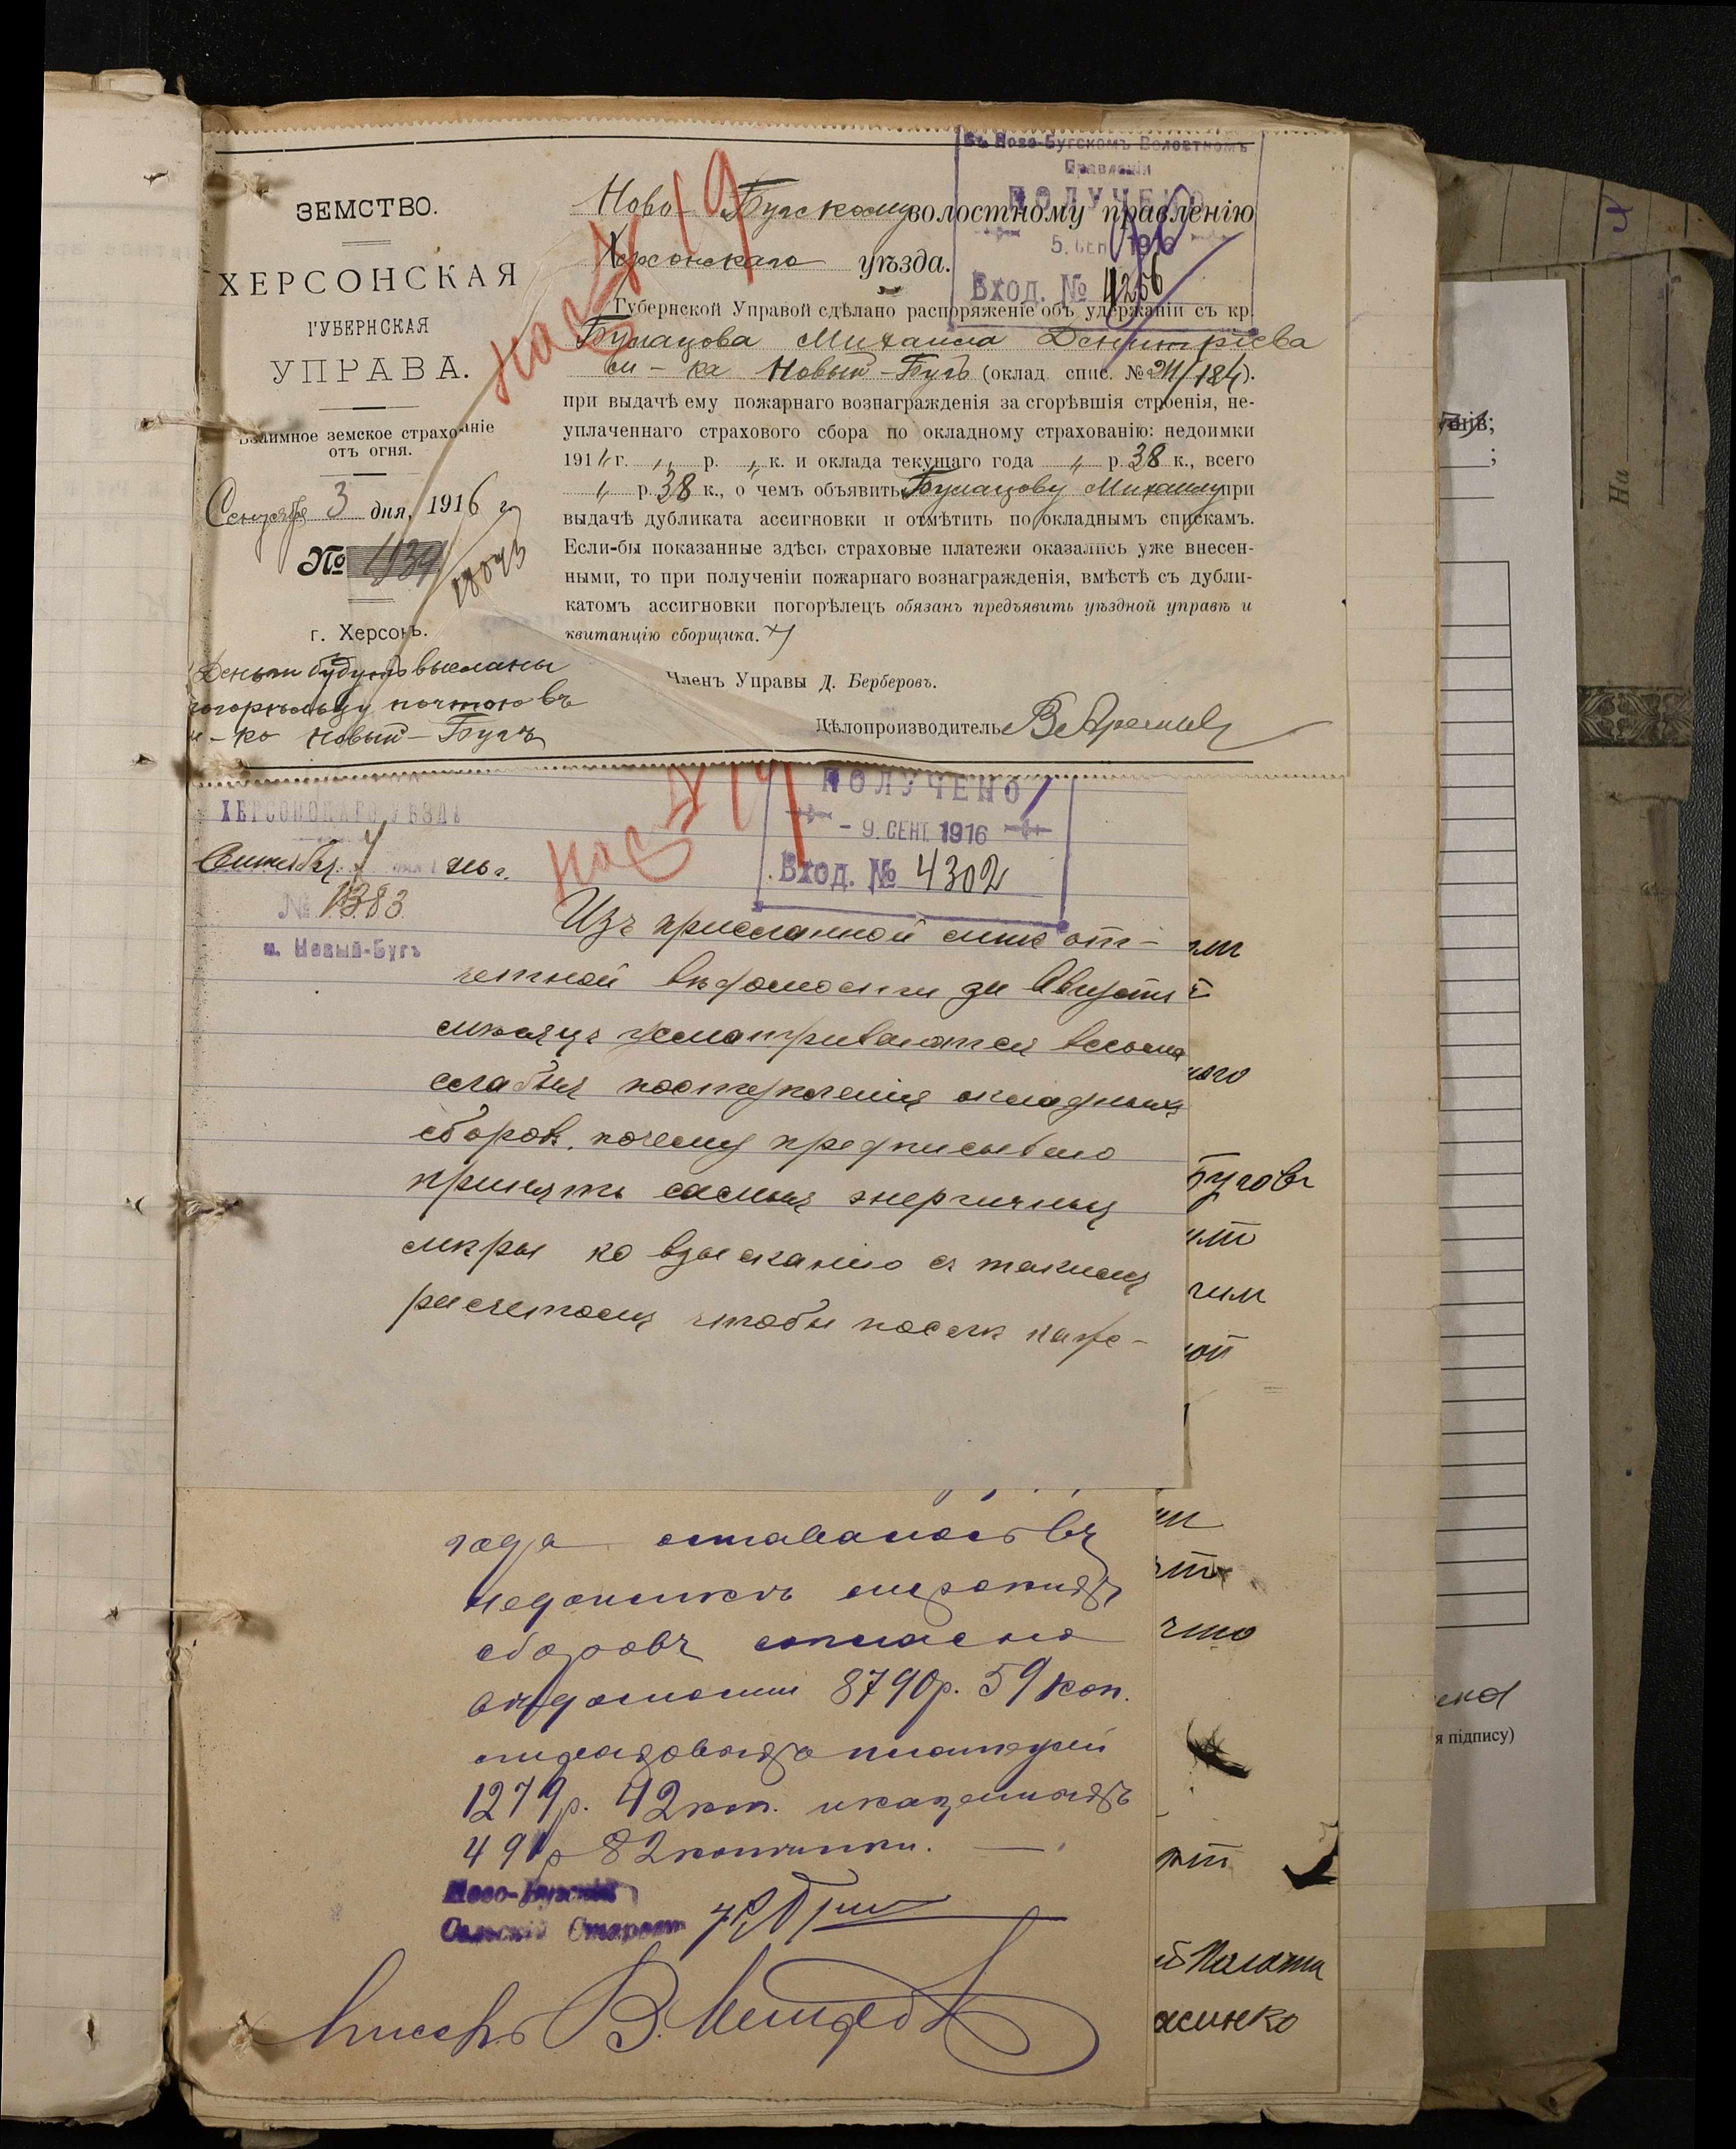 ЗЕМСТВО.
ХЕРСОНСКАЯ
ГУБЕРНСКАЯ
УПРАВА.
Взаимное земское страхованіе
отъ огня.
Сентября 3 дня, 1916 г.
№
г. Херсонъ.
Деньги будутъ высланы
погорѣльцу почтою въ
м-ко Новый-Бугъ
Въ Ново-Бугскомъ Волостномъ
Правленіи
ПОЛУЧЕНО
5. СЕН 1916
Вход. № 4256
Ново-Бугскому волостному правленію
Херсонскаго уѣзда.
Губернской Управой сдѣлано распоряженіе объ удержаніи съ кр.
Булацова Михаила Демитріева
м-ка Новый-Бугъ (оклад. спис. № /184).
при выдачѣ ему пожарнаго вознагражденія за сгорѣвшія строенія, не-
уплаченнаго страхового сбора по окладному страхованію: недоимки
191 г. „ р. „ к. и оклада текущаго года „ р. 38 к., всего
„ р. 38 к., о чемъ объявить Булацову Михаилу при
выдачѣ дубликата ассигновки и отмѣтить по окладнымъ спискамъ.
Если-бы показанные здѣсь страховые платежи оказались уже внесен-
ными, то при полученіи пожарнаго вознагражденія, вмѣстѣ съ дубли-
катомъ ассигновки погорѣлецъ обязанъ предъявить уѣздной управѣ и
квитанцію сборщика.
Членъ Управы Д. Берберовъ.
Дѣлопроизводитель
ХЕРСОНСКАГО УѢЗДА
Сентября 7 дня 1916 г.
№ 1383
м. Новый-Бугъ
ПОЛУЧЕНО
- 9. СЕНТ. 1916
Вход. № 4302
Изъ присланной мнѣ от-
четной вѣдомости за Августъ
мѣсяцъ усматриваются весьма
слабыя поступленія окладныхъ
сборовъ, почему предписываю
принять самыя энергичныя
мѣры ко взысканію съ такимъ
расчетомъ чтобы послѣ каж-
года оставалось въ
недоимкѣ мірскихъ
сборовъ согласно
вѣдомости 8790р. 59 коп.
1279р. 42 коп. и казенныхъ
491р 82 копѣйки.
Ново-Бугскій
Сельскій Староста
Писарь В.
ого
Буговъ
чим
ой
что